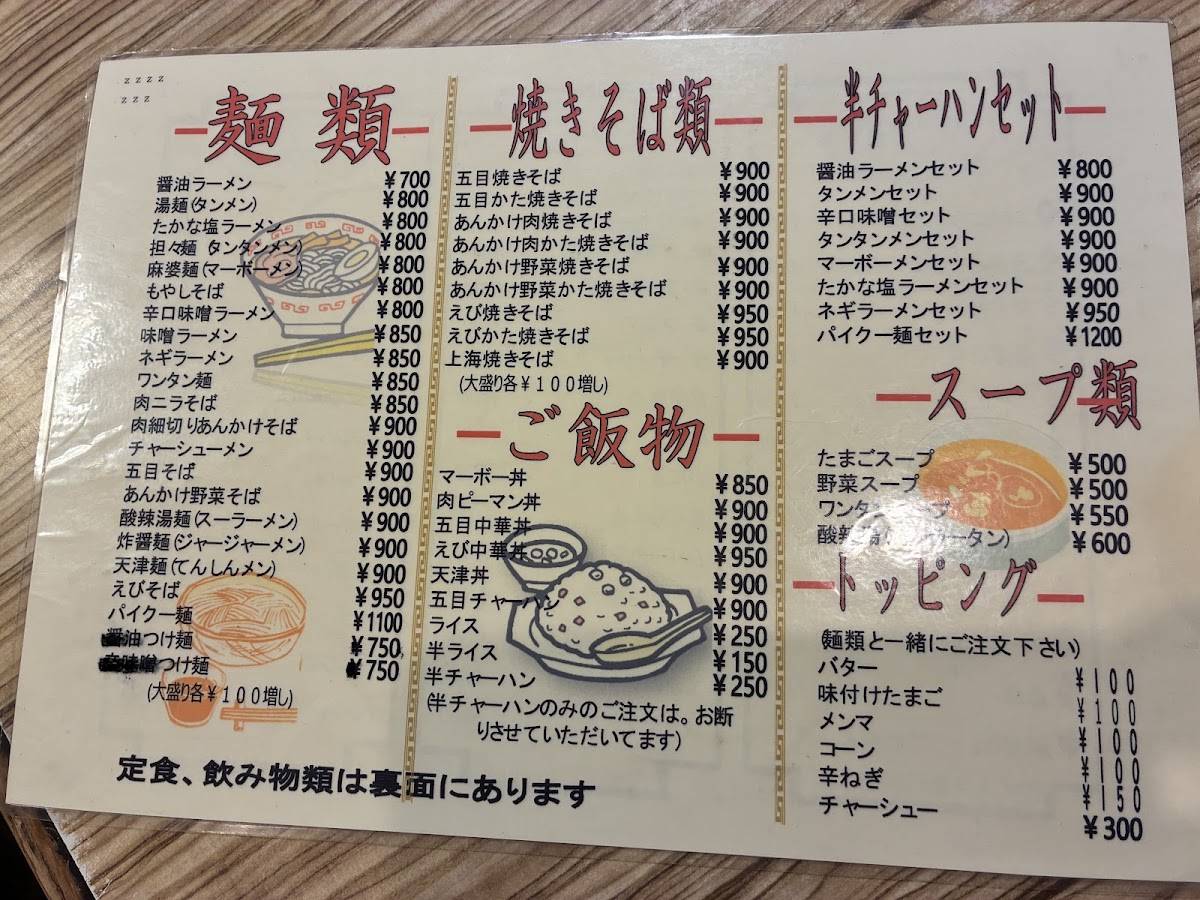 zzzz
zzz
麺類
醤油ラーメン ¥700
湯麺(タンメン) ¥800
たかな塩ラーメン ¥800
担々麺(タンタンメン) ¥800
麻婆麺(マーボーメン) ¥800
もやしそば ¥800
辛口味噌ラーメン ¥800
味噌ラーメン ¥850
ネギラーメン ¥850
ワンタン麺 ¥850
肉ニラそば ¥850
肉細切りあんかけそば ¥900
チャーシューメン ¥900
五目そば ¥900
あんかけ野菜そば ¥900
酸辣湯麺(スーラーメン) ¥900
炸醤麺(ジャージャーメン) ¥900
天津麺(てんしんメン) ¥900
えびそば ¥950
パイクー麺 ¥1100
醤油つけ麺 ¥750
味噌つけ麺 ¥750
(大盛り各¥100増し)
焼きそば類
五目焼きそば ¥900
五目かた焼きそば ¥900
あんかけ肉焼きそば ¥900
あんかけ肉かた焼きそば ¥900
あんかけ野菜焼きそば ¥900
あんかけ野菜かた焼きそば ¥900
えび焼きそば ¥950
えびかた焼きそば ¥950
上海焼きそば ¥900
(大盛り各¥100増し)
ご飯物
マーボー丼 ¥850
肉ピーマン丼 ¥900
五目中華丼 ¥900
えび中華丼 ¥950
天津丼 ¥900
五目チャーハン ¥900
ライス ¥250
半ライス ¥150
半チャーハン ¥250
(半チャーハンのみのご注文は。お断
りさせていただいてます)
半チャーハンセット
醤油ラーメンセット ¥800
タンメンセット ¥900
辛口味噌セット ¥900
タンタンメンセット ¥900
マーボーメンセット ¥900
たかな塩ラーメンセット ¥900
ネギラーメンセット ¥950
パイクー麺セット ¥1200
スープ類
たまごスープ ¥500
野菜スープ ¥500
ワンタ プ ¥550
酸辣 ータン) ¥600
トッピング
(麺類と一緒にご注文下さい)
バター ¥100
味付けたまご ¥100
メンマ ¥100
コーン ¥100
辛ねぎ ¥150
チャーシュー ¥300
定食、飲み物類は裏面にあります